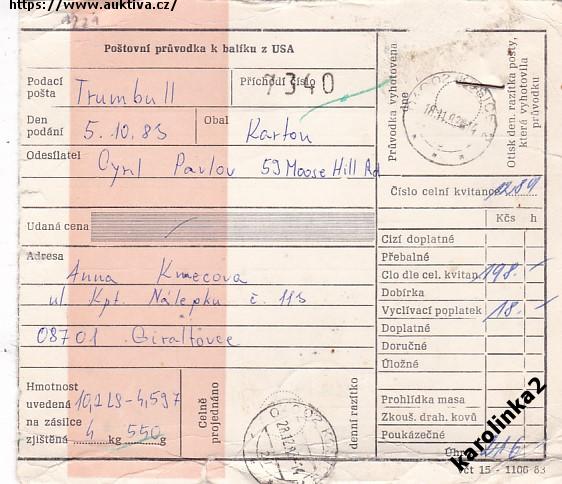 https://www.auktiva.cz/
Poštovní průvodka k balíku z USA
Podací pošta Trumbull
Příchodí číslo 7340
Den podání 5.10.83
Obal Karton
Odesílatel Cyril Pavlov 59 Moose Hill Rd
Udaná cena
Adresa
Anna Kmecova
ul. Kpt. Nálepku č. 113
08701 Giraltovce
Hmotnost
uvedená
na zásilce
zjištěná 4 kg 550 g
Celně projednáno
denní razítko
Průvodka vyhotovena dne
Otisk den. razítka pošty, která vyhotovila průvodku
Číslo celní kvitance
Kčs h
Cizí doplatné
Přebalné
Clo dle cel. kvitan. 198.-
Dobírka
Vyclívací poplatek 18.-
Doplatné
Doručné
Úložné
Prohlídka masa
Zkouš. drah. kovů
Poukázečné
Úhrn 216
Vct 15 - 1106 83
karolinka2